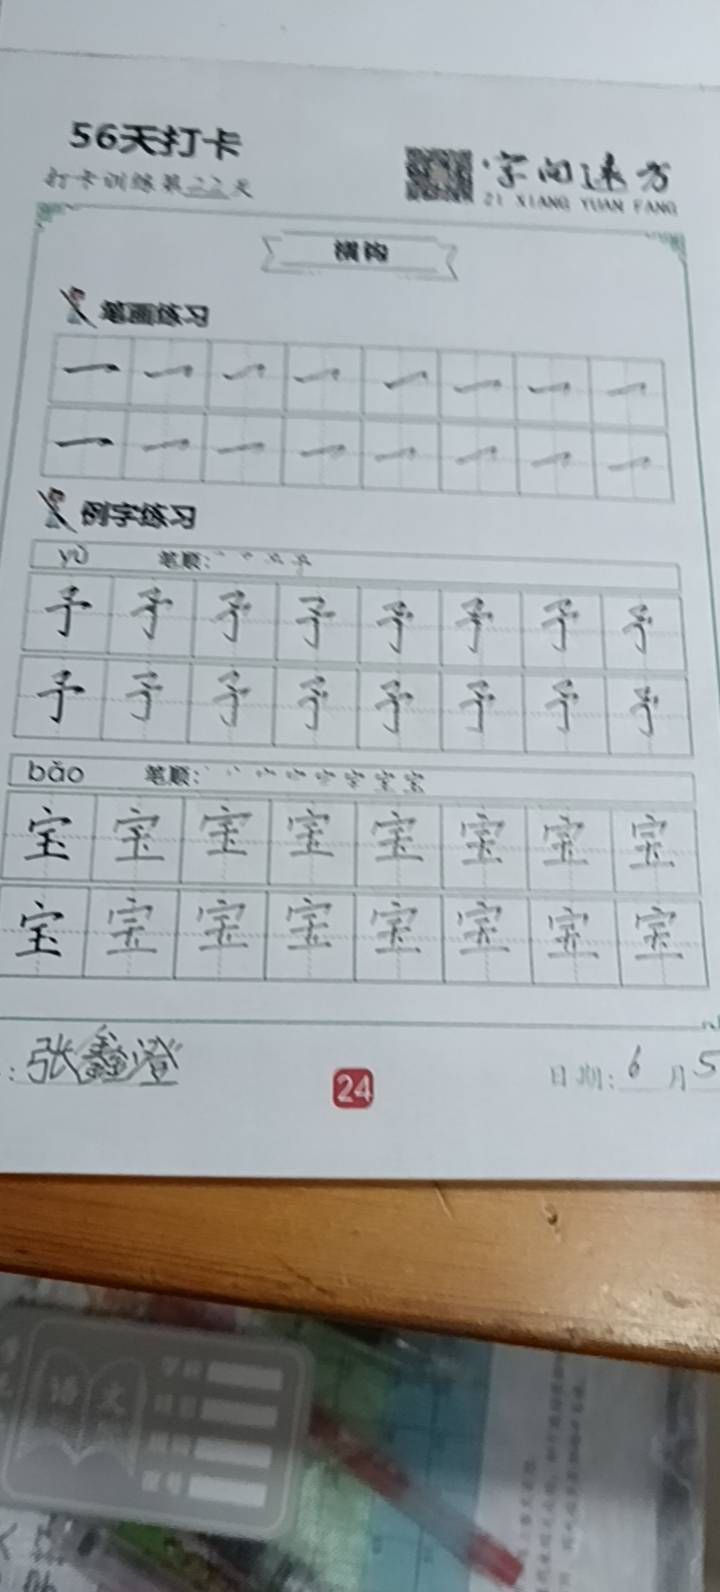 56天打卡
打卡训练第22天
字向远方
ZI XIANG YUAN FANG
横钩
笔画练习
例字练习
yǔ 笔顺:
予 予 予 予 予 予 予 予
予 予 予 予 予 予 予 予
bǎo 笔顺:
宝 宝 宝 宝 宝 宝 宝 宝
宝 宝 宝 宝 宝 宝 宝 宝
: 张鑫澄
24
日期: 6 月 5
语文